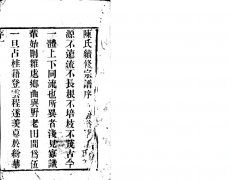 陳氏續修宗譜序
源不遠流不長根不培枝不茂古今
一體上下同流也所異者淺見寡識
輩始則雜處鄉曲與野老田間為伍
一旦占桂籍登雲程遂羨慕於紛華